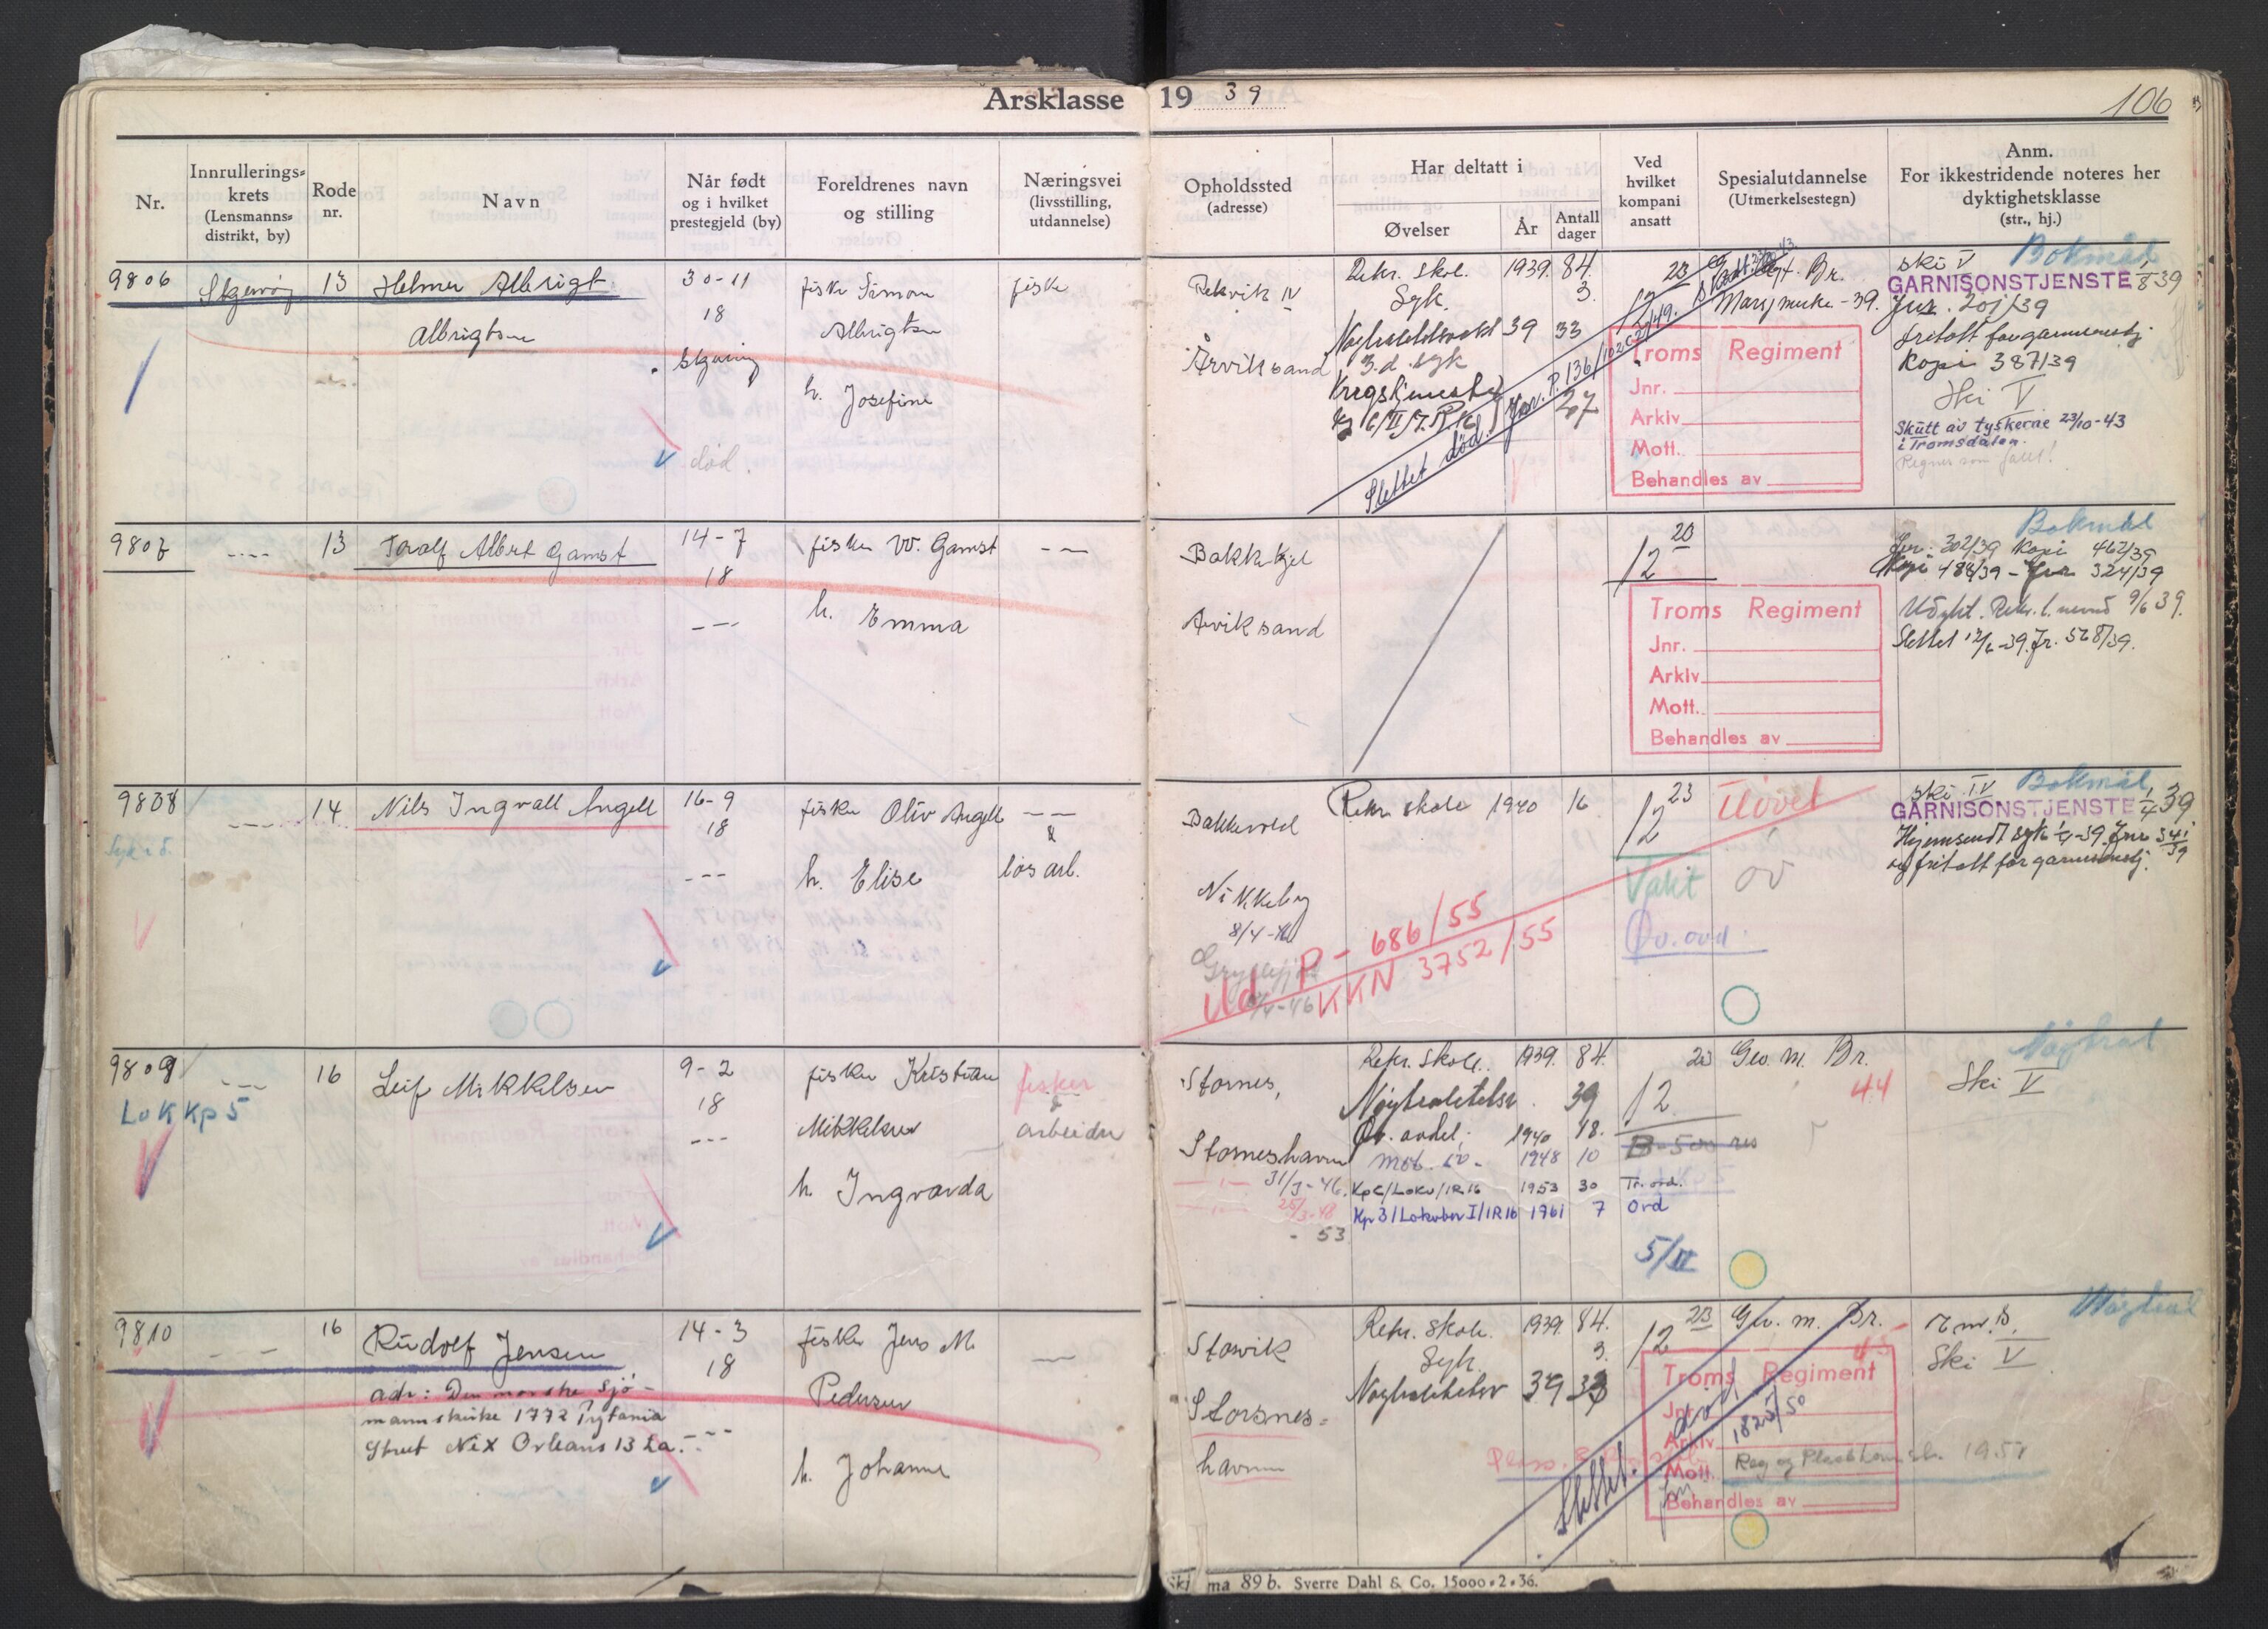 Årsklasse 19 39
106
Nr.
Innrullerings=
krets
(Lensmanns=
distrikt, by)
Rode
nr.
Navn
Når født
og i hvilket
prestegjeld (by)
Foreldrenes navn
og stilling
Næringsvei
(livsstilling,
utdannelse)
Opholdssted
(adresse)
Har deltatt i
Øvelser
År
Antall
dager
Ved
hvilket
kompani
ansatt
Spesialutdannelse
(Utmerkelsestegn)
Anm.
For ikkestridende noteres her
dyktighetsklasse
(str., hj.)
9806 Skjervøy 13 Helmer Albrigt
Albrigtsen
30-11
18
Skjervøy
død.
fisker Simon
Albrigtsen
h. Josefine
fisker
Rekvik IV
Årviksand
Rekr. skol. 1939. 84.
Syk. 3.
39 33
3.d. syk
27
Slettet død. Jnr. P. 136/
Br.
Troms Regiment
Jnr.
Arkiv
Mott.
Behandles av
Bokmål
Ski V
GARNISONSTJENESTE 1/8 39
Jnr. 201/39
Kopi 387/39
Ski V
Skutt av tyskerne 23/10-43
i Tromsdalen.
Regnes som falt!
9807 13 Toralf Albert Gamst
14-7
18
fisker W. Gamst
h. Emma
Bakkekjel
Arviksand
20
12
Troms Regiment
Jnr.
Arkiv
Mott.
Behandles av
Bokmål
Jnr. 302/39 Kopi 462/39
Kopi 488/39 - Jnr 324/39
Udykt. Rekr. l. nevnd 9/6 39.
Slettet 12/6-39. Jr. 568/39.
9808 14 Nils Ingvall Angell
16-9
18
fisker Oliv Angell
h. Elise
&
løsarb.
Bakkevold
Nikkeby
8/4-46
Rekr. skole 1940 16
23
12
Vakt
Øv. avd.
Uøvet
ØV
Ud P- 686/55
KKN 3752/55
Bokmål
Ski IV
GARNISONSTJENESTE 1/4 39
Hjemsendt syk 1/4-39. Jnr 341/39
og fritatt for garnisonstj.
9809 16 Leif Mikkelsen
Lok Kp 5
9-2
18
fisker Kristian
Mikkelsen
h. Ingvarda
fisker
&
arbeider
Stornes,
Storneshavn
31/3-46.
25/3-48
- 53
Rekr. skole. 1939. 84.
Nøytralitetsv. 39
Øv. avdel. 1940 18.
Mob. øv. 1948 10
Kp C/Lokv/IR 16 1953 30 Tr. ord.
Kp 3/Lokvbn I/IR16 1961 7 Ord
20
12
5/II
Gev. m. Br.
44
Nøytral
Ski V
9810 16 Rudolf Jensen
adr: Den norske Sjø-
mannskirke 1772 Prytania
Street New Orleans 13 La.
14-3
18
fisker Jens M.
Pedersen
h. Johanne
Storvik
Storsnes=
havn
Rekr. skole. 1939. 84.
Syk. 3.
Nøytralitetsv 39
20
12
Gev. m. Br.
45
Slettet. død
1825/50
Reg og Plasskom sk. 1951
Troms Regiment
Jnr.
Arkiv
Mott.
Behandles av
Nøytral
Ski V
Skjema 89 b. Sverre Dahl & Co. 15000.2.36.